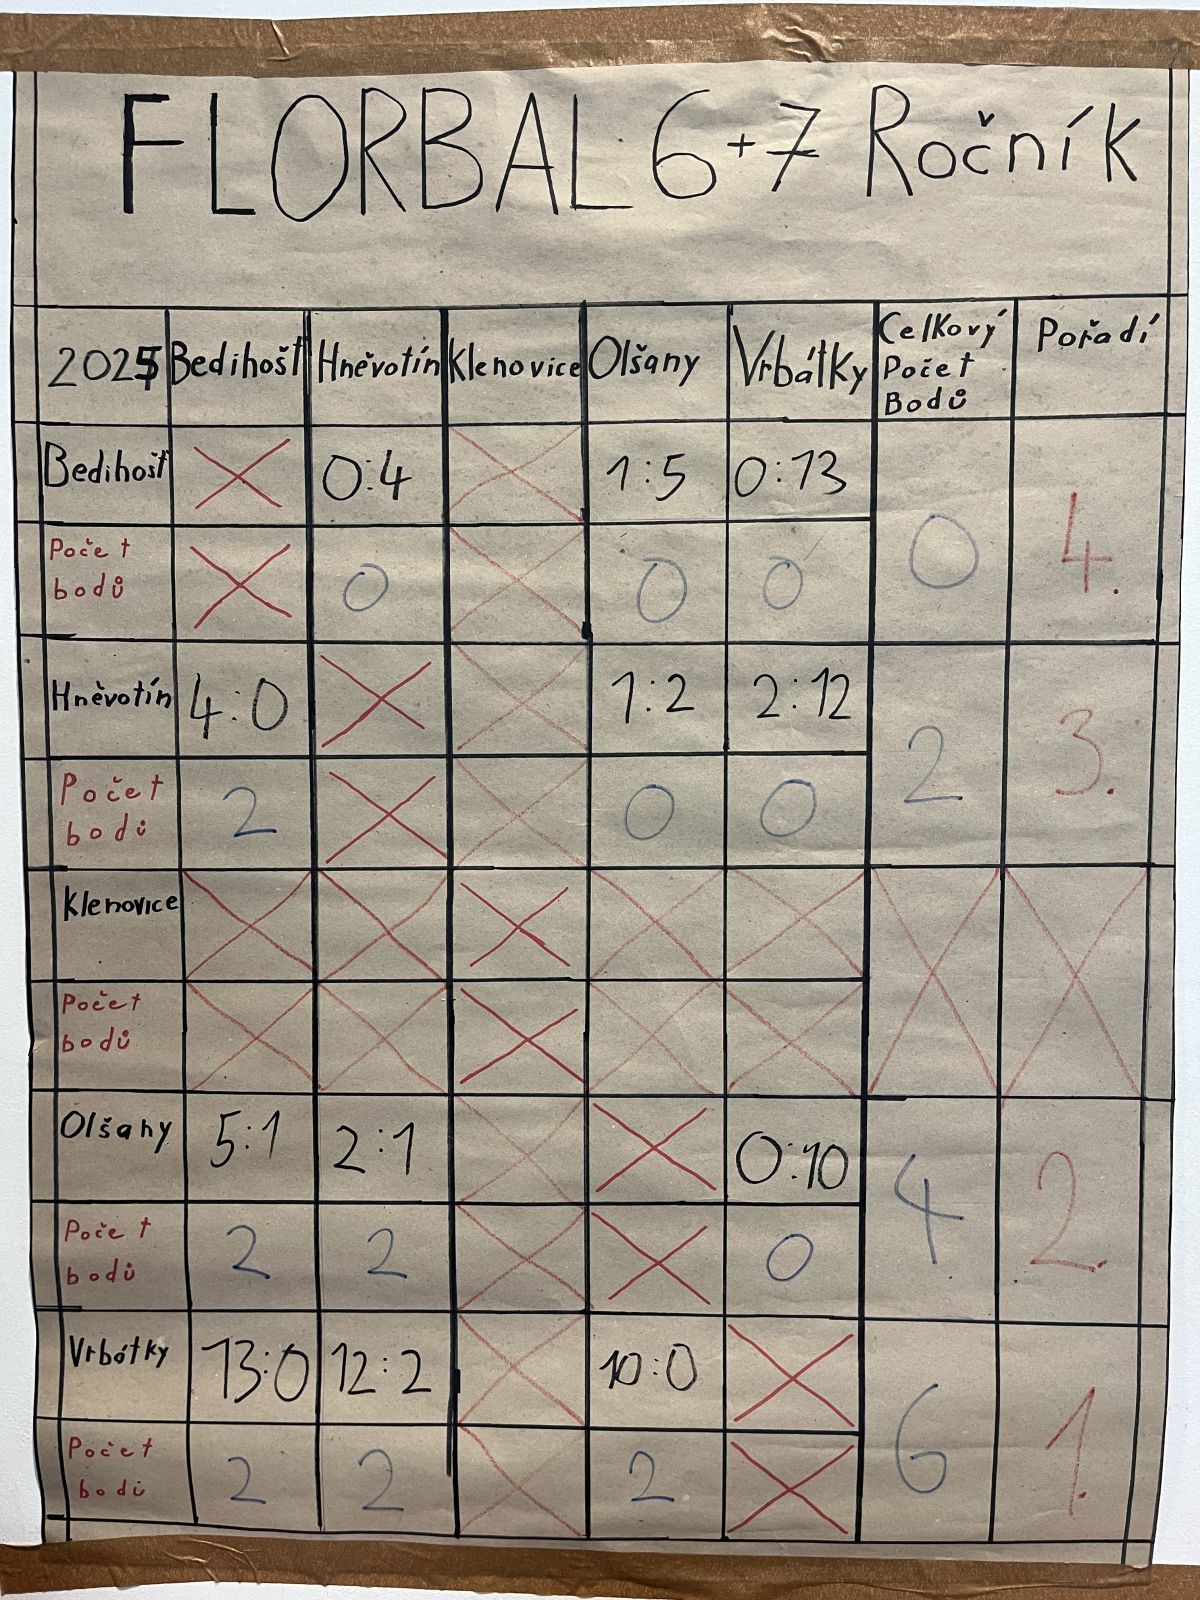 FLORBAL 6+7 Ročník
2025 Bedihošť Hněvotín Klenovice Olšany Vrbátky Celkový Počet Bodů Pořadí
Bedihošť 0:4 1:5 0:13
Počet bodů 0 0 0 0 4.
Hněvotín 4:0 1:2 2:12
Počet bodů 2 0 0 2 3.
Klenovice
Počet bodů
Olšany 5:1 2:1 0:10
Počet bodů 2 2 0 4 2.
Vrbátky 13:0 12:2 10:0
Počet bodů 2 2 2 6 1.